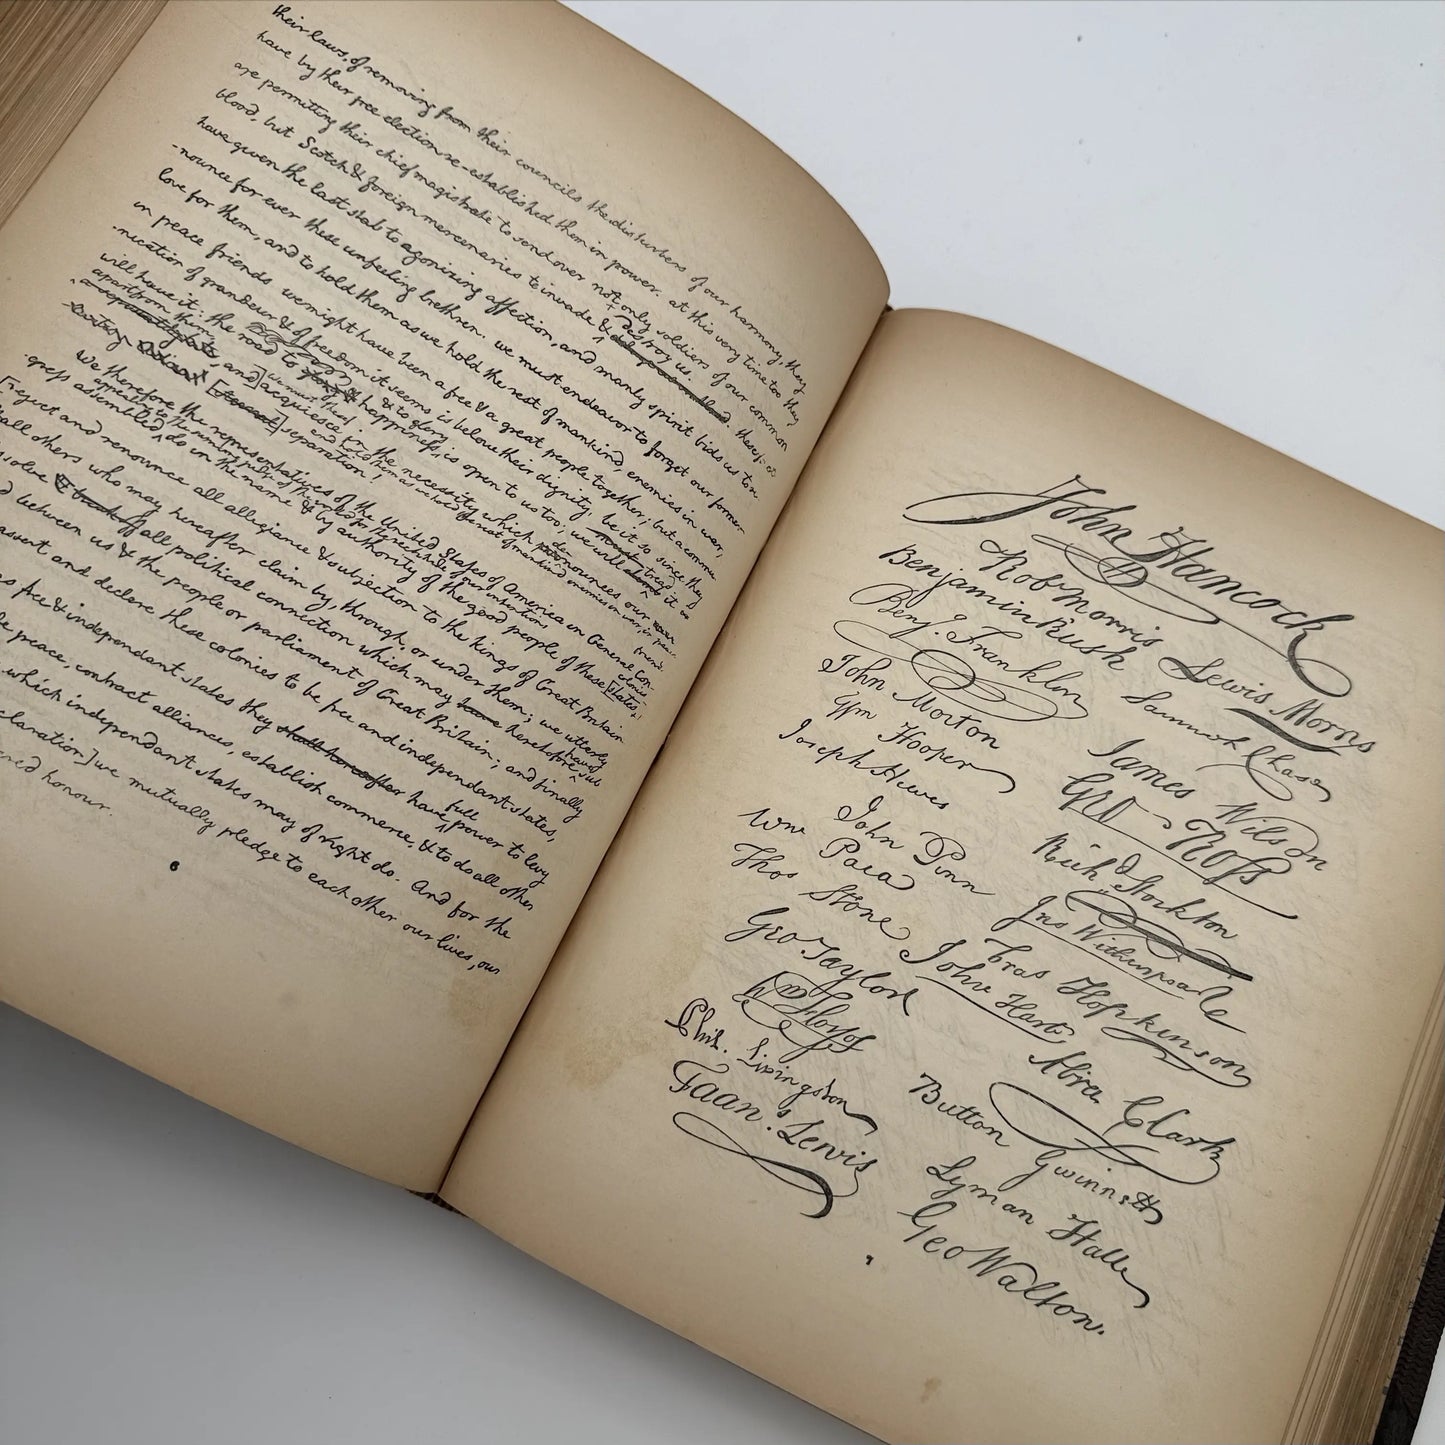 their laws, of removing from their councils the disturbers of our harmony, they
have by their free election re-established them in power. at this very time too they
are permitting their chief magistrate to send over not only soldiers of our common
blood, but Scotch & foreign mercenaries to invade & destroy us. these
have given the last stab to agonizing affection, and manly spirit bids us to re
-nounce for ever these unfeeling brethren. we must endeavor to forget our former
love for them, and to hold them as we hold the rest of mankind, enemies in war,
in peace friends we might have been a free & a great people together; but a commu
-nication of grandeur & of freedom it seems is below their dignity. be it so since they
will have it: the road to happiness & to glory is open to us too; we will tread it
apart from them, and acquiesce in the necessity which denounces our
separation! and hold them as we hold the rest of mankind enemies in war, in peace friends.
We therefore the representatives of the United States of America in General Con-
appealing to the supreme judge of the world for
-gress assembled do in the name & by authority of the good people of these [states,]
[reject and renounce all allegiance & subjection to the kings of Great Britain
all others who may hereafter claim by, through, or under them; we utterly
solve all political connection which may heretofore have sub
between us & the people or parliament of Great Britain; and finally
assert and declare these colonies to be free and independant states,
free & independant states they shall hereafter have full power to levy
peace, contract alliances, establish commerce, & to do all other
which independant states may of right do. And for the
claration] we mutually pledge to each other our lives, our
honour.
6
John Hancock
Rob Morris
Lewis Morris
Benjamin Rush
Benj. Franklin
Samuel Chase
John Morton
James Wilson
Wm Hooper
Geo Ross
Joseph Hewes
John Penn
Richd Stockton
Wm Paca
Jno Witherspoon
Thos Stone
Fras Hopkinson
Geo Taylor
John Hart
Wm Floyd
Abra Clark
Phil. Livingston
Button Gwinnett
Fraans. Lewis
Lyman Hall
Geo Walton.
7